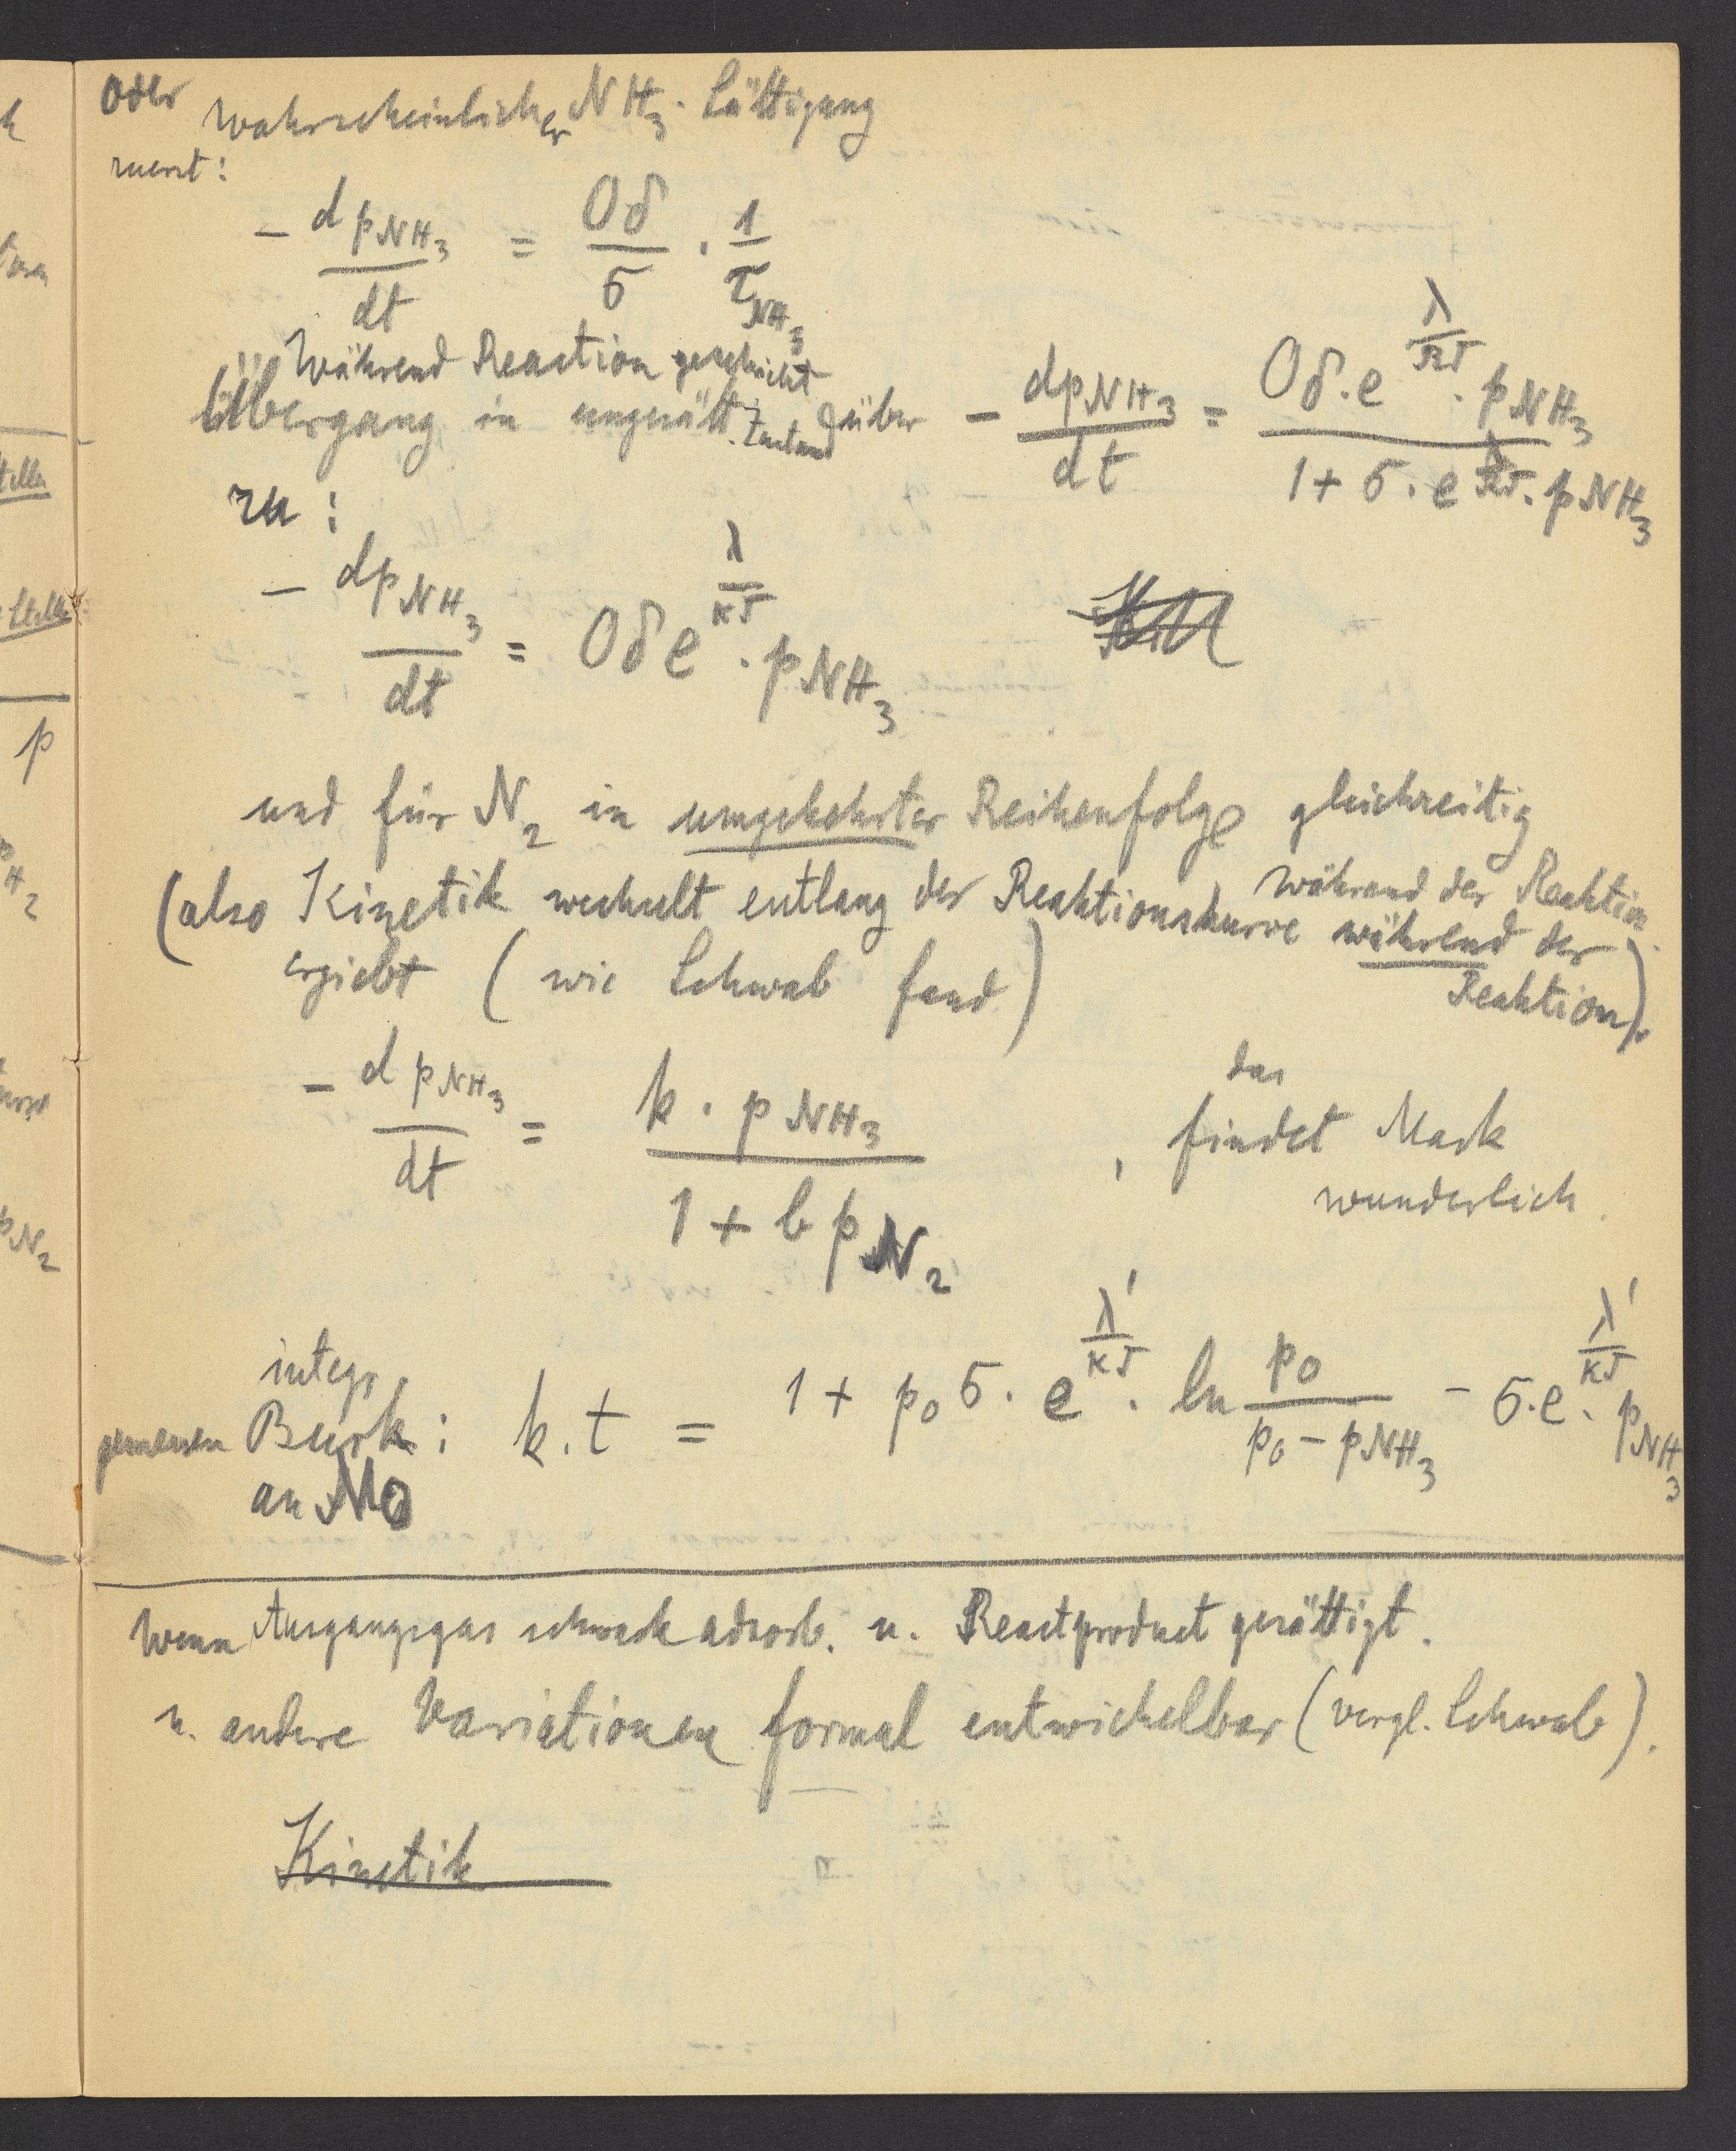 Oder wahrscheinlicher NH3-Sättigung
zuerst:
- d pNH3 / dt = Oδ / σ · 1 / τNH3
Während Reaction geschieht
Übergang in ungesätt. Zustand über - dpNH3 / dt = Oδ·e^(λ/RT) · pNH3 / 1 + σ·e^(λ/RT)·pNH3
zu:
- dpNH3 / dt = Oδe^(λ/RT) · pNH3
und für N2 in umgekehrter Reihenfolge gleichzeitig
während der Reaktion
(also Kinetik wechselt entlang der Reaktionskurve während der
Reaktion).
ergiebt (wie Schwab fand)
- d pNH3 / dt = k · pNH3 / 1 + b pN2 , das findet Mark
wunderlich.
integr.
gemessen Burk: k.t = 1 + p0 σ · e^(λ'/RT) · ln p0 / p0 - pNH3 - σ·e^(λ'/RT) · pNH3
an Mo
Wenn Ausgangsgas schwach adsorb. u. Reactproduct gesättigt.
u. andere Variationen formal entwickelbar (vergl. Schwab).
Kinetik
k
p
H2
pN2